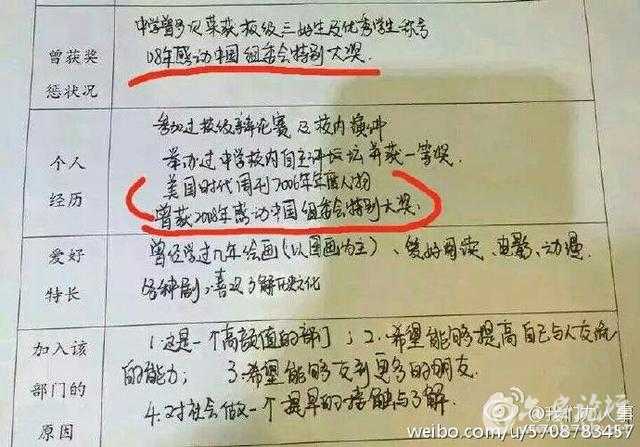 曾获奖
惩状况
中学曾多次荣获校级三好生及优秀学生称号
08年感动中国组委会特别大奖.
个人
经历
参加过校级辩论赛及校内演讲
举办过中学校内自主评坛并获一等奖.
美国时代周刊2006年年度人物
曾获2008年感动中国组委会特别大奖.
爱好
特长
曾经学过几年绘画(以国画为主)、爱好阅读、电影、动漫.
各种剧,喜欢了解历史文化
加入该
部门的
原因
1.这是一个高颜值的部门;2.希望能够提高自己与人交流
的能力;3.希望能够交到更多的朋友.
4.对社会做一个提早的接触与了解.
weibo.com/u/5708783457